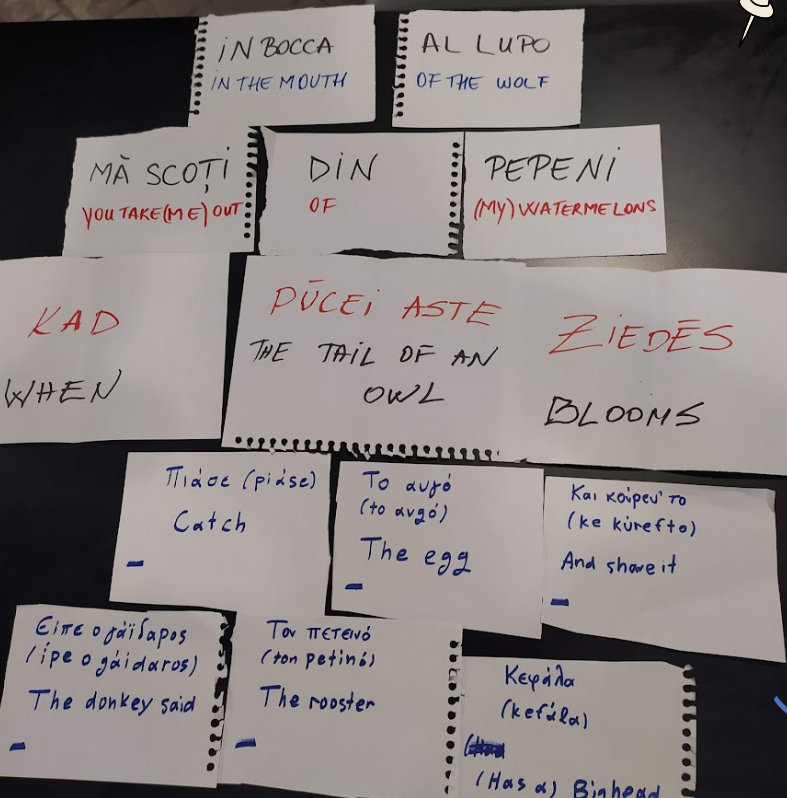 IN BOCCA
IN THE MOUTH
AL LUPO
OF THE WOLF
MĂ SCOȚI
YOU TAKE (ME) OUT
DIN
OF
PEPENI
(MY) WATERMELONS
KAD
WHEN
PŪCEI ASTE
THE TAIL OF AN
OWL
ZIEDĒS
BLOOMS
Πιάσε (piáse)
Catch
Το αυγό
(to avgó)
The egg
Και κούρευ' το
(ke kùrefto)
And shave it
Είπε ο γάϊδαρος
(ípe o gáidaros)
The donkey said
Τον πετεινό
(ton petinó)
The rooster
Κεφάλα
(kefála)
(Has a) Bighead